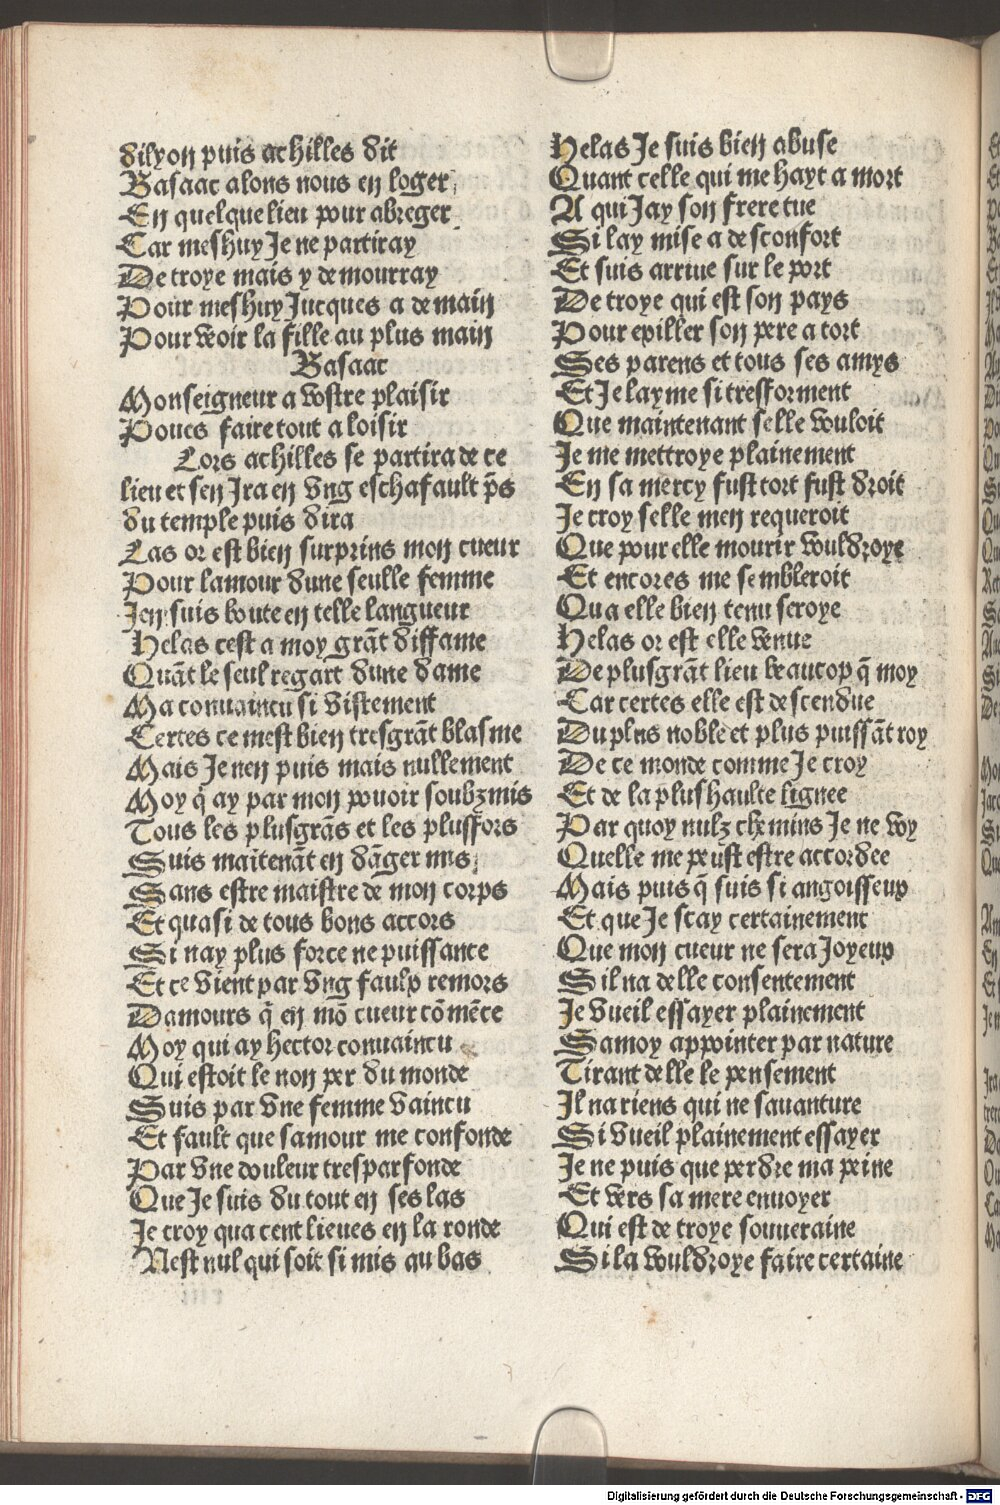 dilyon puis achilles dit
Basaac alons nous en loger
En quelque lieu pour abreger
Car meshuy Je ne partiray
De troye mais y demourray
Pour meshuy Jucques a demain
Pour veoir la fille au plus main
Basaac
Monseigneur a vostre plaisir
Poues faire tout a loisir
Lors achilles se partira de ce
lieu et sen Jra en vng eschafault p̃s
du temple puis dira
Las or est bien surprins mon cueur
Pour lamour dune seulle femme
Jen suis boute en telle langueur
Helas cest a moy grãt diffame
Quãt le seul regart dune dame
Ma conuaincu si vistement
Certes ce mest bien tresgrãt blasme
Mais Je nen puis mais nullement
Moy q̃ ay par mon pouoir soubzmis
Tous les plusgrãs et les plusfors
Suis maĩtenãt en dãger mis
Sans estre maistre de mon corps
Et quasi de tous bons accors
Si nay plus force ne puissance
Et ce vient par vng faulx remors
Damours q̃ en mõ cueur cõmẽce
Moy qui ay hector conuaincu
Qui estoit le non per du monde
Suis par vne femme vaincu
Et fault que samour me confonde
Par vne douleur tresparfonde
Que Je suis du tout en ses las
Je croy qua cent lieues en la ronde
Nest nul qui soit si mis au bas
Helas Je suis bien abuse
Quant celle qui me hayt a mort
A qui Jay son frere tue
Si lay mise a desconfort
Et suis arriue sur le port
De troye qui est son pays
Pour epiller son pere a tort
Ses parens et tous ses amys
Et Je layme si tresforment
Que maintenant selle vouloit
Je me mettroye plainement
En sa mercy fust tort fust droit
Je croy selle men requeroit
Que pour elle mourir vouldroye
Et encores me sembleroit
Qua elle bien tenu seroye
Helas or est elle venue
De plusgrãt lieu beaucop q̃ moy
Car certes elle est descendue
Du plus noble et plus puissãt roy
De ce monde comme Je croy
Et de la plus haulte lignee
Par quoy nulz chemins Je ne voy
Quelle me peust estre accordee
Mais puis q̃ suis si angoisseux
Et que Je scay certainement
Que mon cueur ne sera Joyeux
Sil na delle consentement
Je vueil essayer plainement
Samoy appointer par nature
Tirant delle le pensement
Il na riens qui ne sauanture
Si vueil plainement essayer
Je ne puis que perdre ma peine
Et vers sa mere enuoyer
Qui est de troye souueraine
Si la vouldroye faire certaine
Digitalisierung gefördert durch die Deutsche Forschungsgemeinschaft - DFG